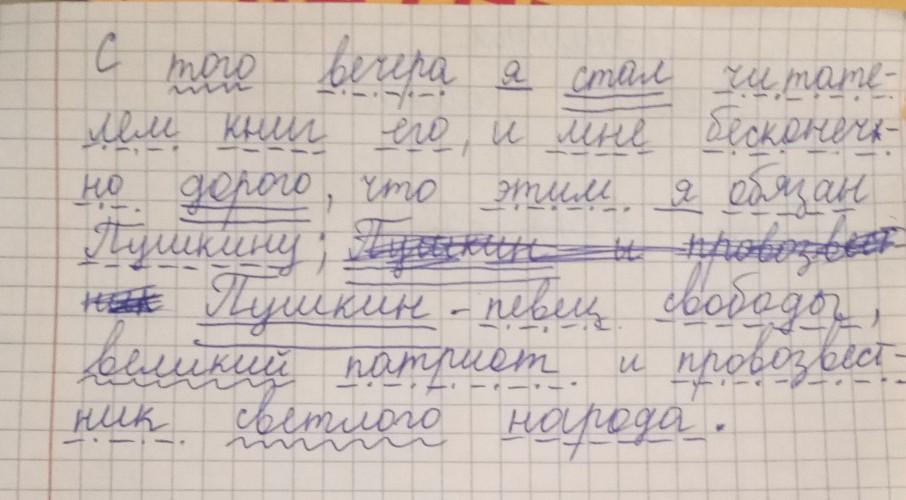 С того вечера я стал читате-
лем книг его, и мне бесконеч-
но дорого, что этим я обязан
Пушкину; Пушкин и провозвест
ник Пушкин - певец свободы,
великий патриот и провозвест-
ник светлого народа.